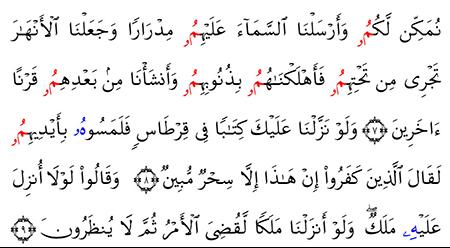 نُمَكِّن لَّكُمُۥ وَأَرْسَلْنَا ٱلسَّمَآءَ عَلَيْهِمُۥ مِدْرَارًا وَجَعَلْنَا ٱلْأَنْهَٰرَ
تَجْرِى مِن تَحْتِهِمُۥ فَأَهْلَكْنَٰهُمُۥ بِذُنُوبِهِمُۥ وَأَنشَأْنَا مِنۢ بَعْدِهِمُۥ قَرْنًا
ءَاخَرِينَ ۝٧ وَلَوْ نَزَّلْنَا عَلَيْكَ كِتَٰبًا فِى قِرْطَاسٍ فَلَمَسُوهُۥ بِأَيْدِيهِمُۥ
لَقَالَ ٱلَّذِينَ كَفَرُوٓا۟ إِنْ هَٰذَا إِلَّا سِحْرٌ مُّبِينٌ ۝٨ وَقَالُوا۟ لَوْلَا أُنزِلَ
عَلَيْهِۦ مَلَكٌ ۖ وَلَوْ أَنزَلْنَا مَلَكًا لَّقُضِىَ ٱلْأَمْرُ ثُمَّ لَا يُنظَرُونَ ۝٩